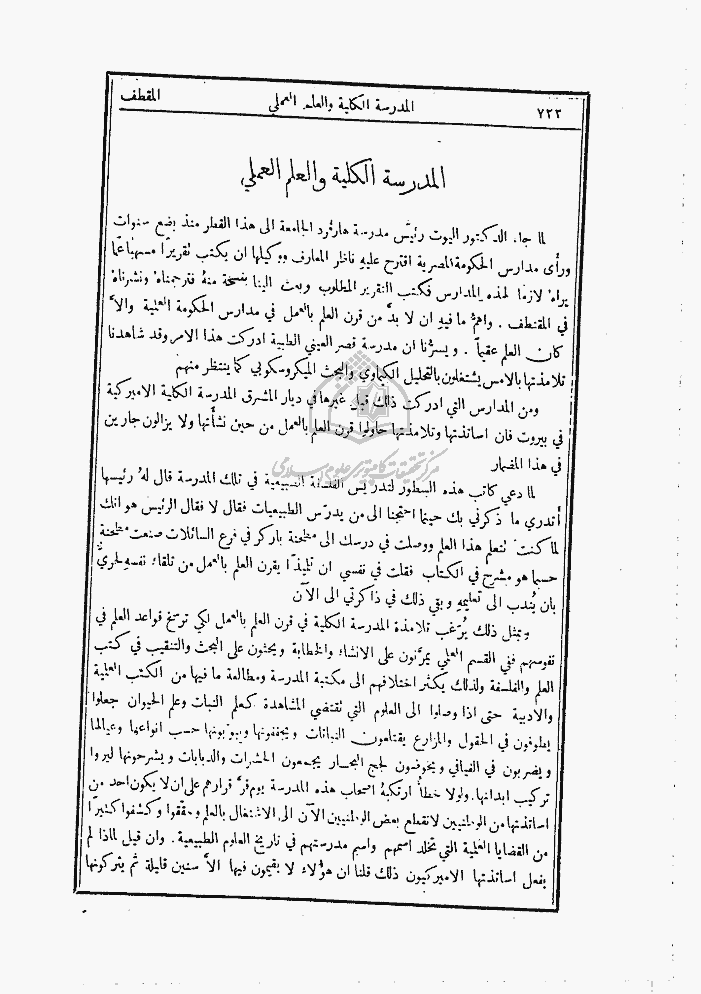 ٧٢٢ المدرسة الكلية والعلم العملي المقتطف
المدرسة الكلية والعلم العملي
لما جاء الدكتور اليوت رئيس مدرسة هارڤرد الجامعة الى هذا القطر منذ بضع سنوات
ورأى مدارس الحكومة المصرية اقترح عليهِ ناظر المعارف ووكيلها ان يكتب تقريرًا مسهبًا عمَّا
يراهُ لازمًا لهذه المدارس فكتب التقرير المطلوب وبعث الينا بنسخة منهُ فترجمناهُ ونشرناهُ
في المقتطف . واهمُّ ما فيهِ ان لا بدَّ من قرن العلم بالعمل في مدارس الحكومة العلمية والاَّ
كان العلم عقيمًا . ويسرُّنا ان مدرسة قصر العيني الطبية ادركت هذا الامر وقد شاهدنا
تلامذتها بالامس يشتغلون بالتحليل الكيماوي والبحث الميكروسكوبي كما ينتظر منهم
ومن المدارس التي ادركت ذلك قبل غيرها في ديار المشرق المدرسة الكلية الاميركية
في بيروت فان اساتذتها وتلامذتها حاولوا قرن العلم بالعمل من حين نشأتها ولا يزالون جارين
في هذا المضمار
مركز تحقيقات كامپيوتري علوم اسلامي
لما دعي كاتب هذه السطور لتدريس الفلسفة الطبيعية في تلك المدرسة قال لهُ رئيسها
أتدري ما ذكرني بك حينما احتجنا الى من يدرّس الطبيعيات فقال لا فقال الرئيس هو انك
لما كنت تتعلم هذا العلم ووصلت في درسك الى مطحنة باركر في فرع السائلات صنعت مطحنة
حسبما هو مشرح في الكتاب فقلت في نفسي ان تلميذًا يقرن العلم بالعمل من تلقاء نفسهِ لحريٌّ
بان يُندب الى تعليمهِ وبقي ذلك في ذاكرتي الى الآن
وبمثل ذلك يُرغَّب تلامذة المدرسة الكلية في قرن العلم بالعمل لكي ترسخ قواعد العلم في
نفوسهم ففي القسم العلمي يمرَّنون على الانشاء والخطابة ويحثون على البحث والتنقيب في كتب
العلم والفلسفة ولذلك يكثر اختلافهم الى مكتبة المدرسة ومطالعة ما فيها من الكتب العلمية
والادبية حتى اذا وصلوا الى العلوم التي تقتضي المشاهدة كعلم النبات وعلم الحيوان جعلوا
يطوفون في الحقول والمزارع يقتلعون النباتات ويجففونها ويبوّبونها حسب انواعها وعيالها
ويضربون في الفيافي ويخوضون لجج البحار يجمعون الحشرات والدبابات ويشرحونها ليروا
تركيب ابدانها. ولولا خطأ ارتكبهُ اصحاب هذه المدرسة يوم قرَّ قرارهم على ان لا يكون احد من
اساتذتها من الوطنيين لانقطع بعض الوطنيين الآن الى الاشتغال بالعلم وحققوا وكشفوا كثيرًا
من القضايا العلمية التي تخلد اسمهم واسم مدرستهم في تاريخ العلوم الطبيعية . وان قيل لماذا لم
يفعل اساتذتها الاميركيون ذلك قلنا ان هؤلاء لا يقيمون فيها الاَّ سنين قليلة ثم يتركونها